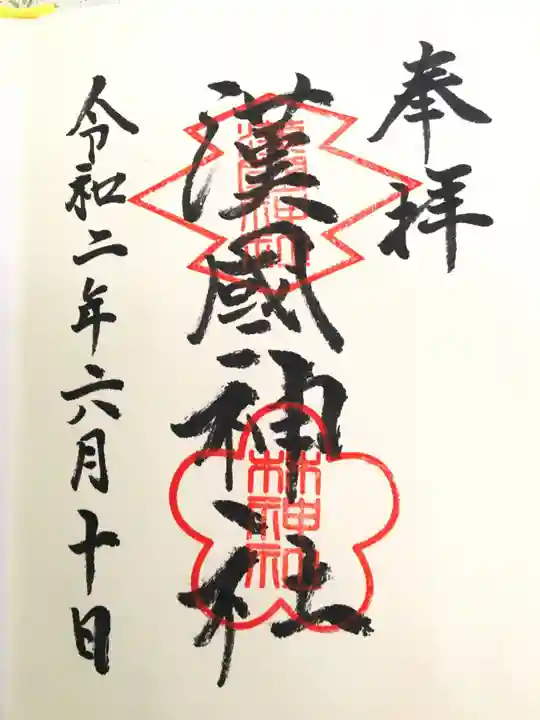 奉拝
漢國神社
漢國神社
林神社
令和二年六月十日